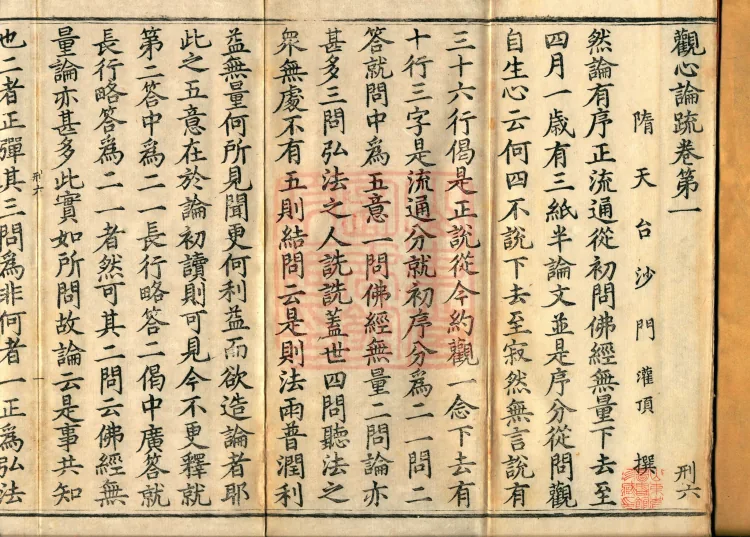 觀心論䟽卷第一 刑六
隋天台沙門灌頂撰
然論有序正流通從初問佛經無量下去至
四月一歲有三紙半論文並是序分從問觀
自生心云何四不說下去至寂然無言說有
三十六行偈是正說從今約觀一念下去有
十行三字是流通分就初序分爲二一問二
答就問中爲五意一問佛經無量二問論亦
甚多三問弘法之人詵詵蓋世四問聽法之
衆無處不有五則結問云是則法雨普潤利
益無量何所見聞更何利益而欲造論者耶
此之五意在於論初讀則可見今不更釋就
第二答中爲二一長行略答二偈中廣答就
長行略答爲二一者然可其二問云佛經無
量論亦甚多此實如所問故論云是事共知
刑六 一
也二者正彈其三問爲非何者一正爲弘法